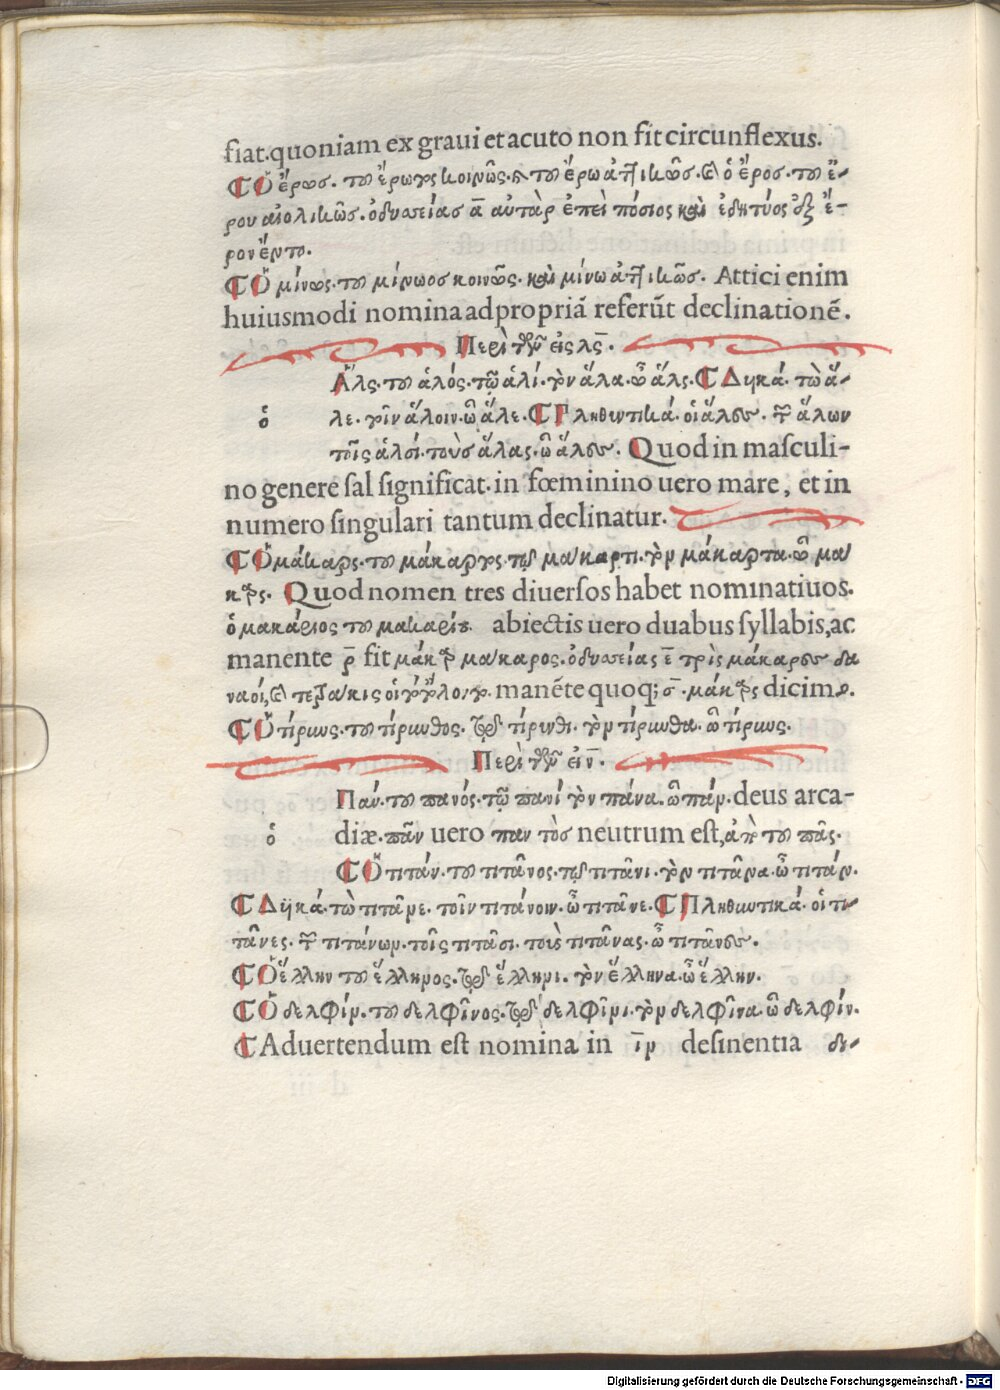 fiat.quoniam ex graui et acuto non fit circunflexus.
¶Ὁ ἔρως. τοῦ ἔρωτος κοινῶς. τοῦ ἔρω ἀττικῶς. ὁ ἔρος. τοῦ ἔ-
ρου αἰολικῶς. ὀδυσσείας α̅ αὐτὰρ ἐπεὶ πόσιος καὶ ἐδητύος ἐξ ἔ-
ρον ἕντο.
¶Ὁ μίνως. τοῦ μίνωος κοινῶς. καὶ μίνω ἀττικῶς. Attici enim
huiusmodi nomina ad propriā referūt declinationē.
Περὶ τῶν εἰς λς̅.
Ἅλς. τοῦ ἁλός. τῷ ἁλί. τὸν ἅλα. ὦ ἅλς. ¶Δυϊκά. τὼ ἅ-
ὁ
λε. τοῖν ἅλοιν. ὦ ἅλε. ¶Πληθυντικά. οἱ ἅλες. τῶν ἅλων
τοῖς ἁλσί. τοὺς ἅλας. ὦ ἅλες. Quod in maſculi-
no genere ſal ſignificat. in fœminino uero mare, et in
numero ſingulari tantum declinatur.
¶Ὁ μάκαρς. τοῦ μάκαρτος. τῷ μάκαρτι. τὸν μάκαρτα. ὦ μά
καρς. Quod nomen tres diuerſos habet nominatiuos.
ὁ μακάριος τοῦ μακαρίου. abiectis uero duabus ſyllabis, ac
manente ρ̅ fit μάκαρ μάκαρος. ὀδυσσείας ε̅ τρὶς μάκαρες δα
ναοί, manēte quoq; σ̅. μάκαρς dicimꝰ.
¶Ὁ τίρυνς. τοῦ τίρυνθος. τῷ τίρυνθι. τὸν τίρυνθα. ὦ τίρυνς.
Περὶ τῶν εἰς ν̅.
Πάν. τοῦ πανός. τῷ πανί τὸν πάνα. ὦ πάν. deus arca-
ὁ
diæ. πᾶν uero παντὸς neutrum eſt, ἀπὸ τοῦ πᾶς.
¶Ὁ τιτάν. τοῦ τιτᾶνος. τῷ τιτᾶνι. τὸν τιτᾶνα. ὦ τιτάν.
¶Δυϊκά. τὼ τιτᾶνε. τοῖν τιτάνοιν. ὦ τιτᾶνε. ¶Πληθυντικά. οἱ τι-
τᾶνες. τῶν τιτάνων. τοῖς τιτᾶσι. τοὺς τιτᾶνας. ὦ τιτᾶνες.
¶Ὁ ἕλλην τοῦ ἕλληνος. τῷ ἕλληνι. τὸν ἕλληνα. ὦ ἕλλην.
¶Ὁ δελφίν. τοῦ δελφῖνος. τῷ δελφῖνι. τὸν δελφῖνα. ὦ δελφίν.
¶Aduertendum eſt nomina in ιν̅ deſinentia δυ-
Digitalisierung gefördert durch die Deutsche Forschungsgemeinschaft - DFG